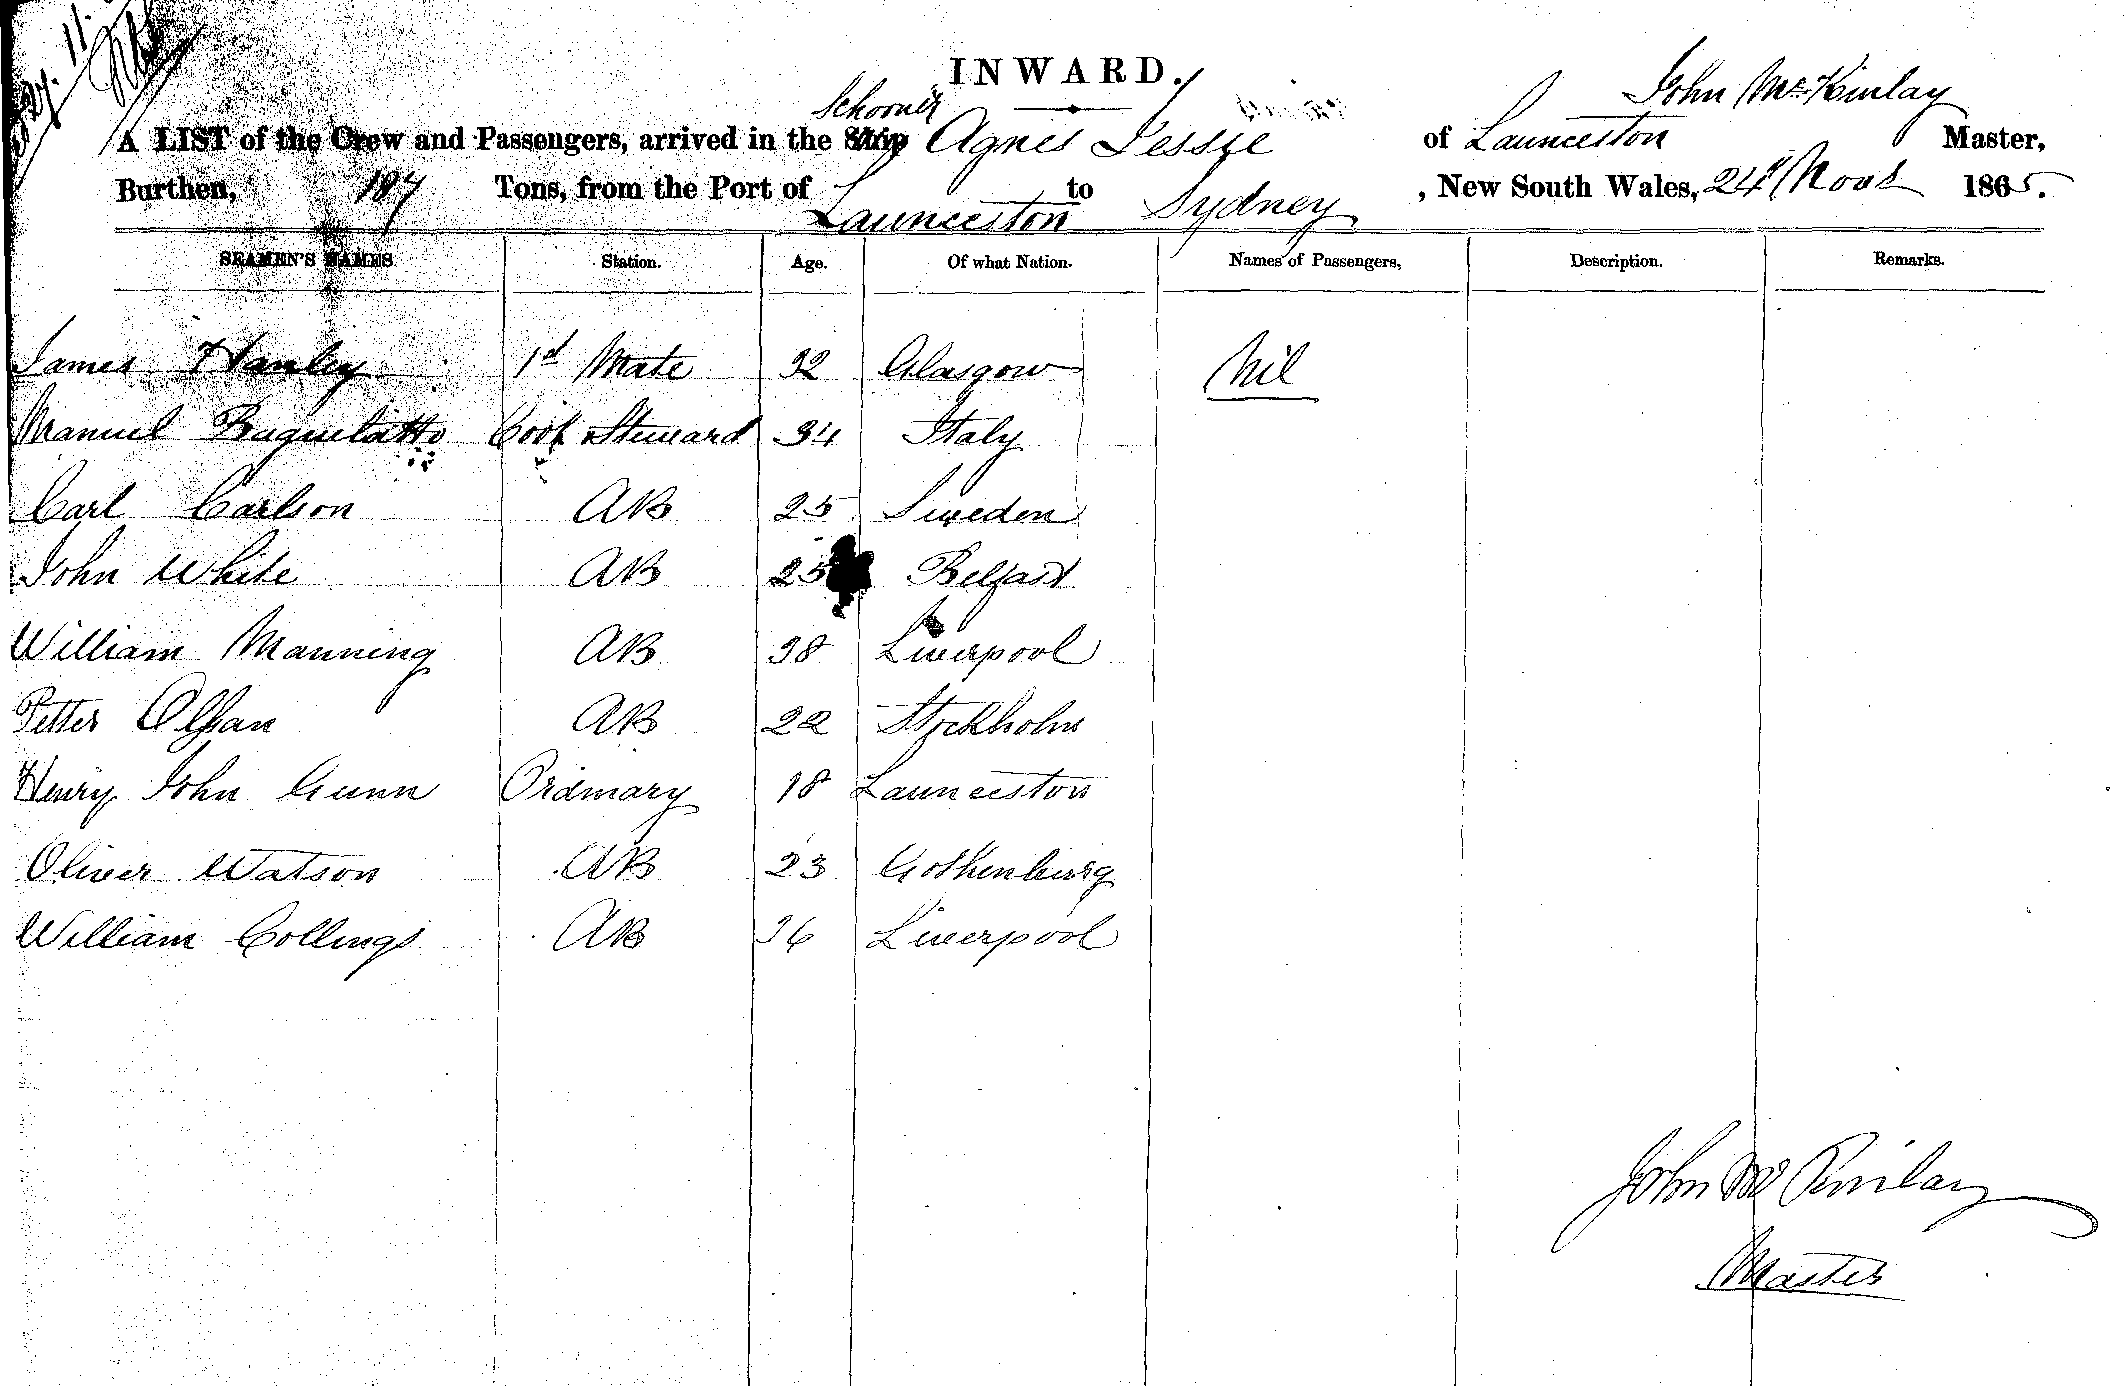 INWARD.
Schooner John McKinlay
A LIST of the Crew and Passengers, arrived in the Ship Agnes Jessie of Launceston Master,
Burthen, 187 Tons, from the Port of Launceston to Sydney, New South Wales, 24th Novr 1865.
SEAMEN'S NAMES Station. Age. Of what Nation. Names of Passengers, Description. Remarks.
James Hanley 1st Mate 32 Glasgow Nil
Manuel Cook Steward 34 Italy
Carl Carlson AB 25 Sweden
John White AB 25 Belfast
William Manning AB 38 Liverpool
Petter Olssan AB 22 Stockholm
Henry John Gunn Ordinary 18 Launceston
Oliver Watson AB 23 Gothenburg
William Collings AB 36 Liverpool
John McKinlay
Master